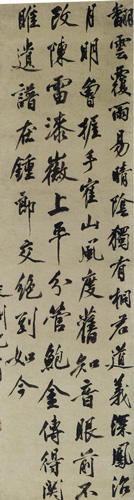 翻雲覆雨易晴陰獨有桐君道義深鳳沼
月明曾握手寉山風度舊知音眼前不
改陳雷漆徽上平分管鮑金傳得關
雎遺譜在鍾郎交絕到如今